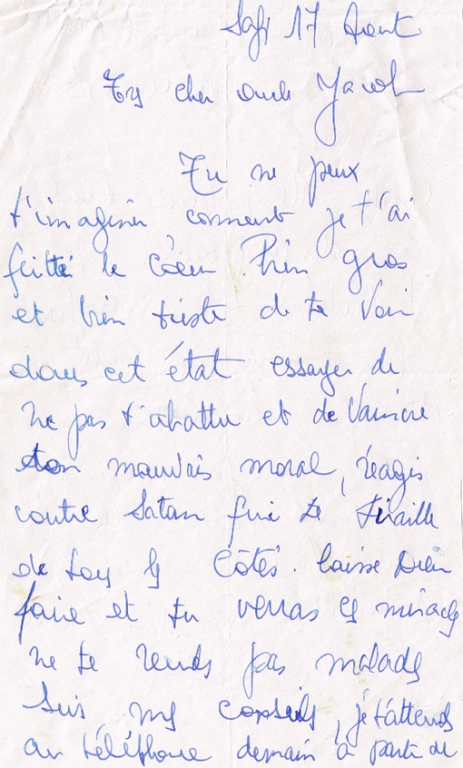 Safi 17 Aout
Trs cher oncle Jacob
Tu ne peux
t'imaginer, comment je t'ai
quitté le cœur bien gros
et bien triste de te voir
dans cet état essayer de
ne pas t'abattre et de vaincre
ton mauvais moral, réagis
contre Satan qui te tiraille
de tous ls côtés. laisse Dieu
faire et tu verras ls miracls
ne te rends pas malade
Suis ms conseils, je t'attends
au téléphone demain à partir de